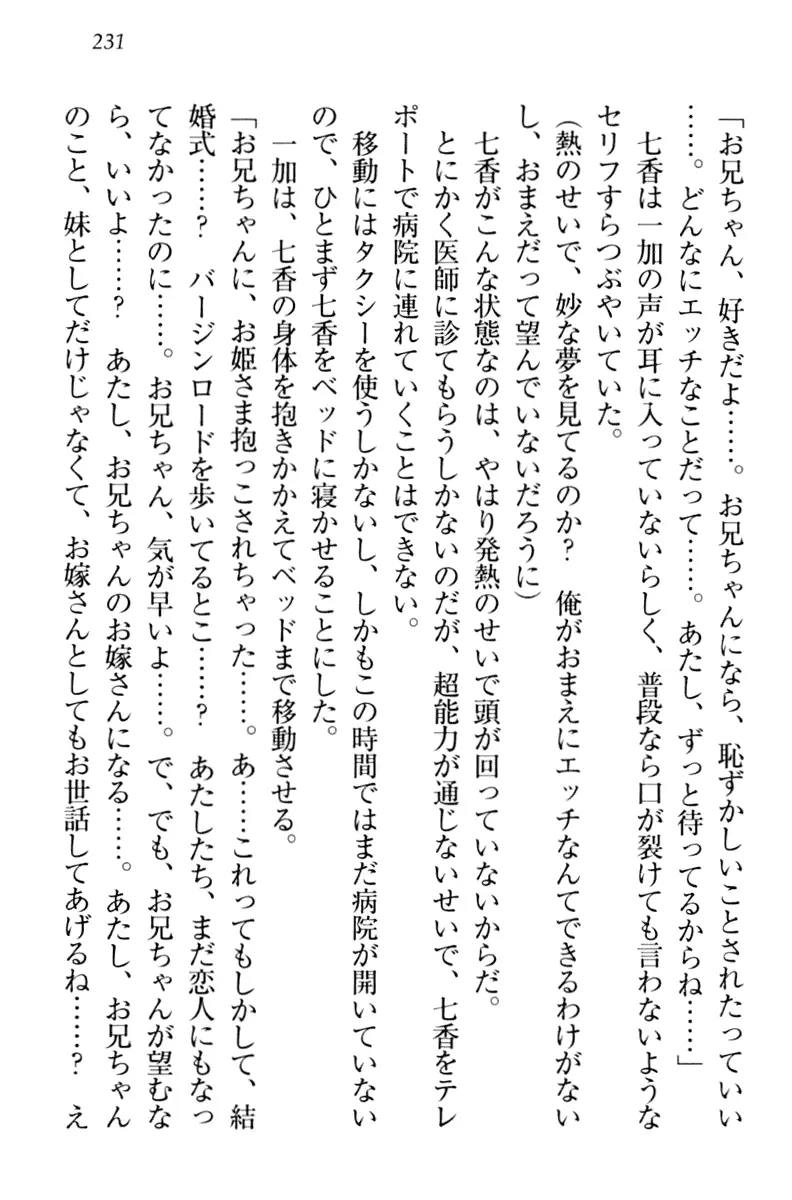 231
「お兄ちゃん、好きだよ……。お兄ちゃんになら、恥ずかしいことされたっていい
……。どんなにエッチなことだって……。あたし、ずっと待ってるからね……」
　七香は一加の声が耳に入っていないらしく、普段なら口が裂けても言わないような
セリフすらつぶやいていた。
（熱のせいで、妙な夢を見てるのか？　俺がおまえにエッチなんてできるわけがない
し、おまえだって望んでいないだろうに）
　七香がこんな状態なのは、やはり発熱のせいで頭が回っていないからだ。
　とにかく医師に診てもらうしかないのだが、超能力が通じないせいで、七香をテレ
ポートで病院に連れていくことはできない。
　移動にはタクシーを使うしかないし、しかもこの時間ではまだ病院が開いていない
ので、ひとまず七香をベッドに寝かせることにした。
　一加は、七香の身体を抱きかかえてベッドまで移動させる。
「お兄ちゃんに、お姫さま抱っこされちゃった……。あ……これってもしかして、結
婚式……？　バージンロードを歩いてるとこ……？　あたしたち、まだ恋人にもなっ
てなかったのに……。お兄ちゃん、気が早いよ……。で、でも、お兄ちゃんが望むな
ら、いいよ……？　あたし、お兄ちゃんのお嫁さんになる……。あたし、お兄ちゃん
のこと、妹としてだけじゃなくて、お嫁さんとしてもお世話してあげるね……？　え